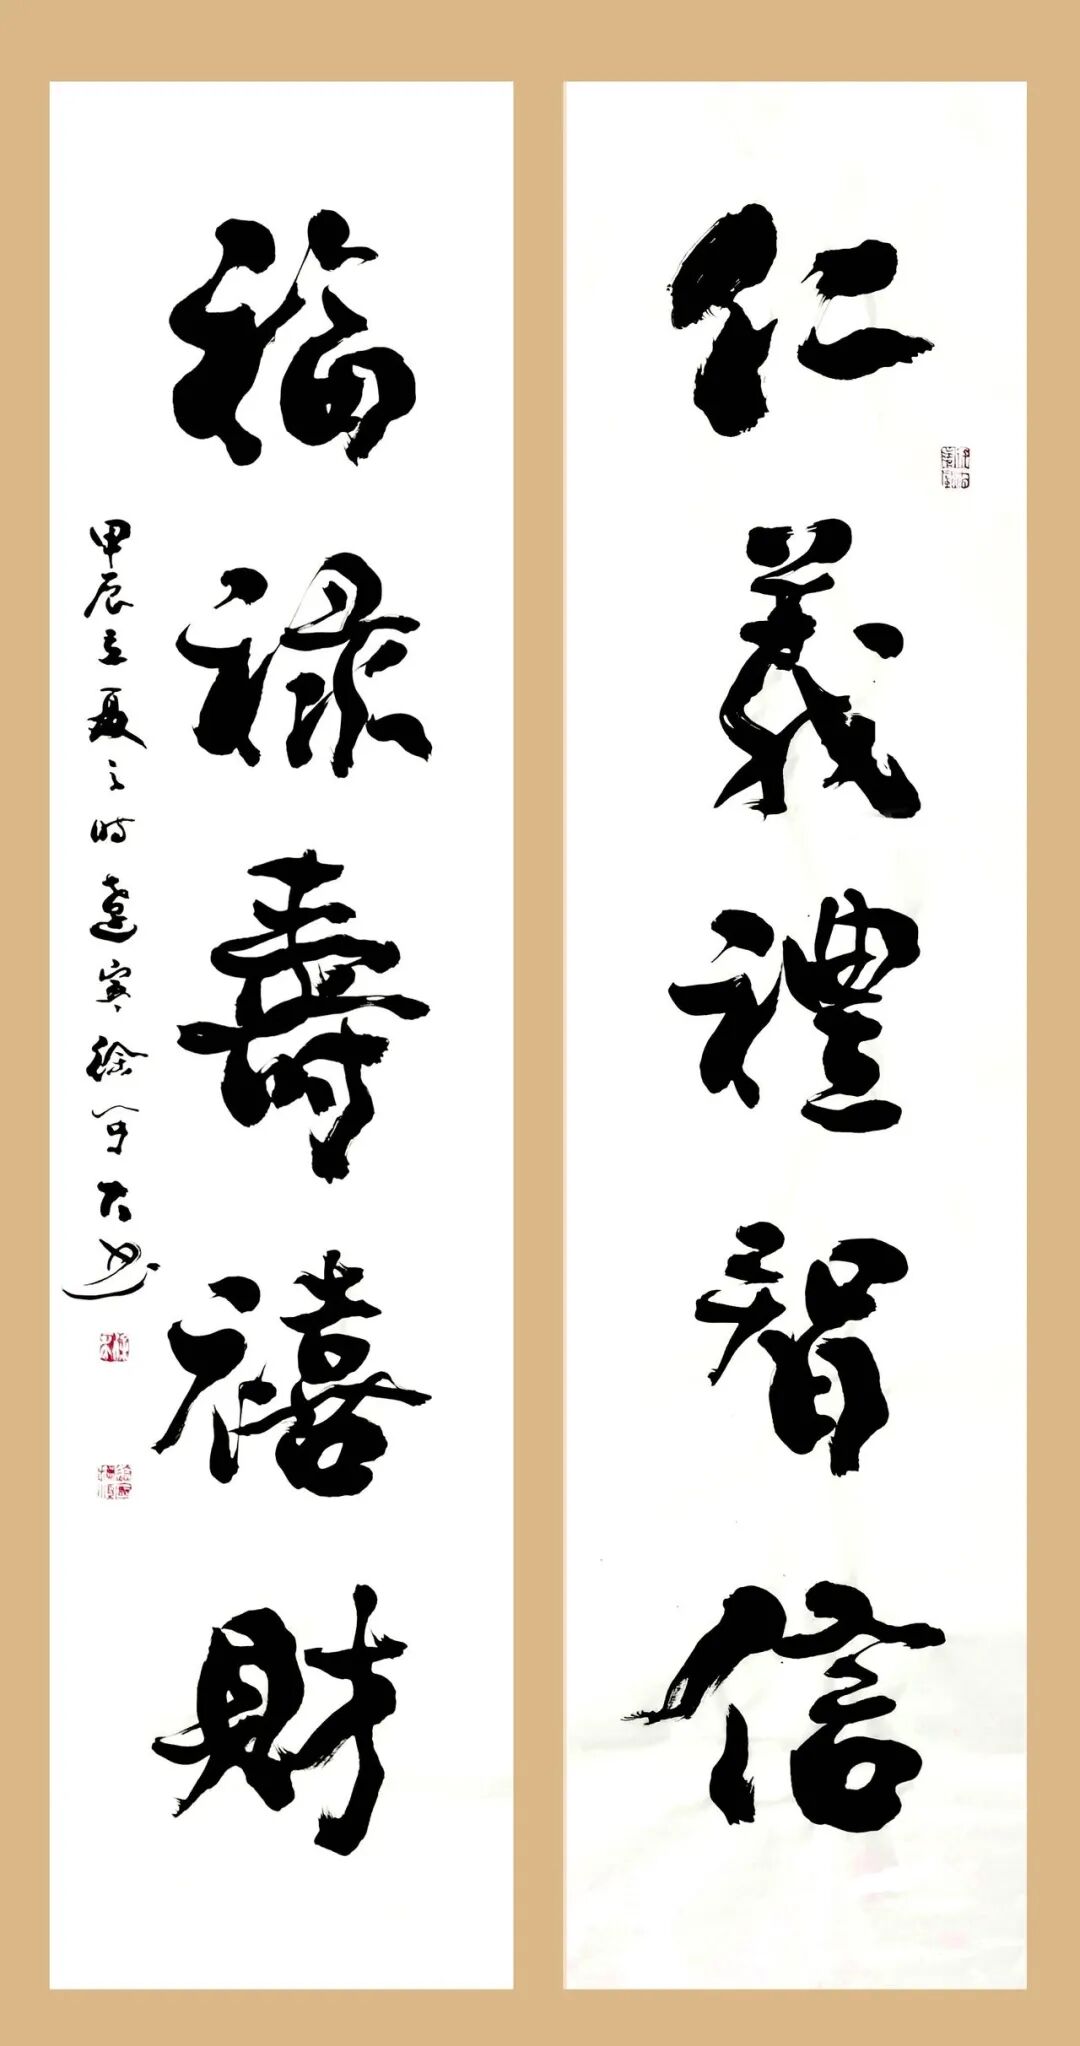 仁義禮智信
福祿壽禧財
甲辰立夏之時遠寒徐學大書